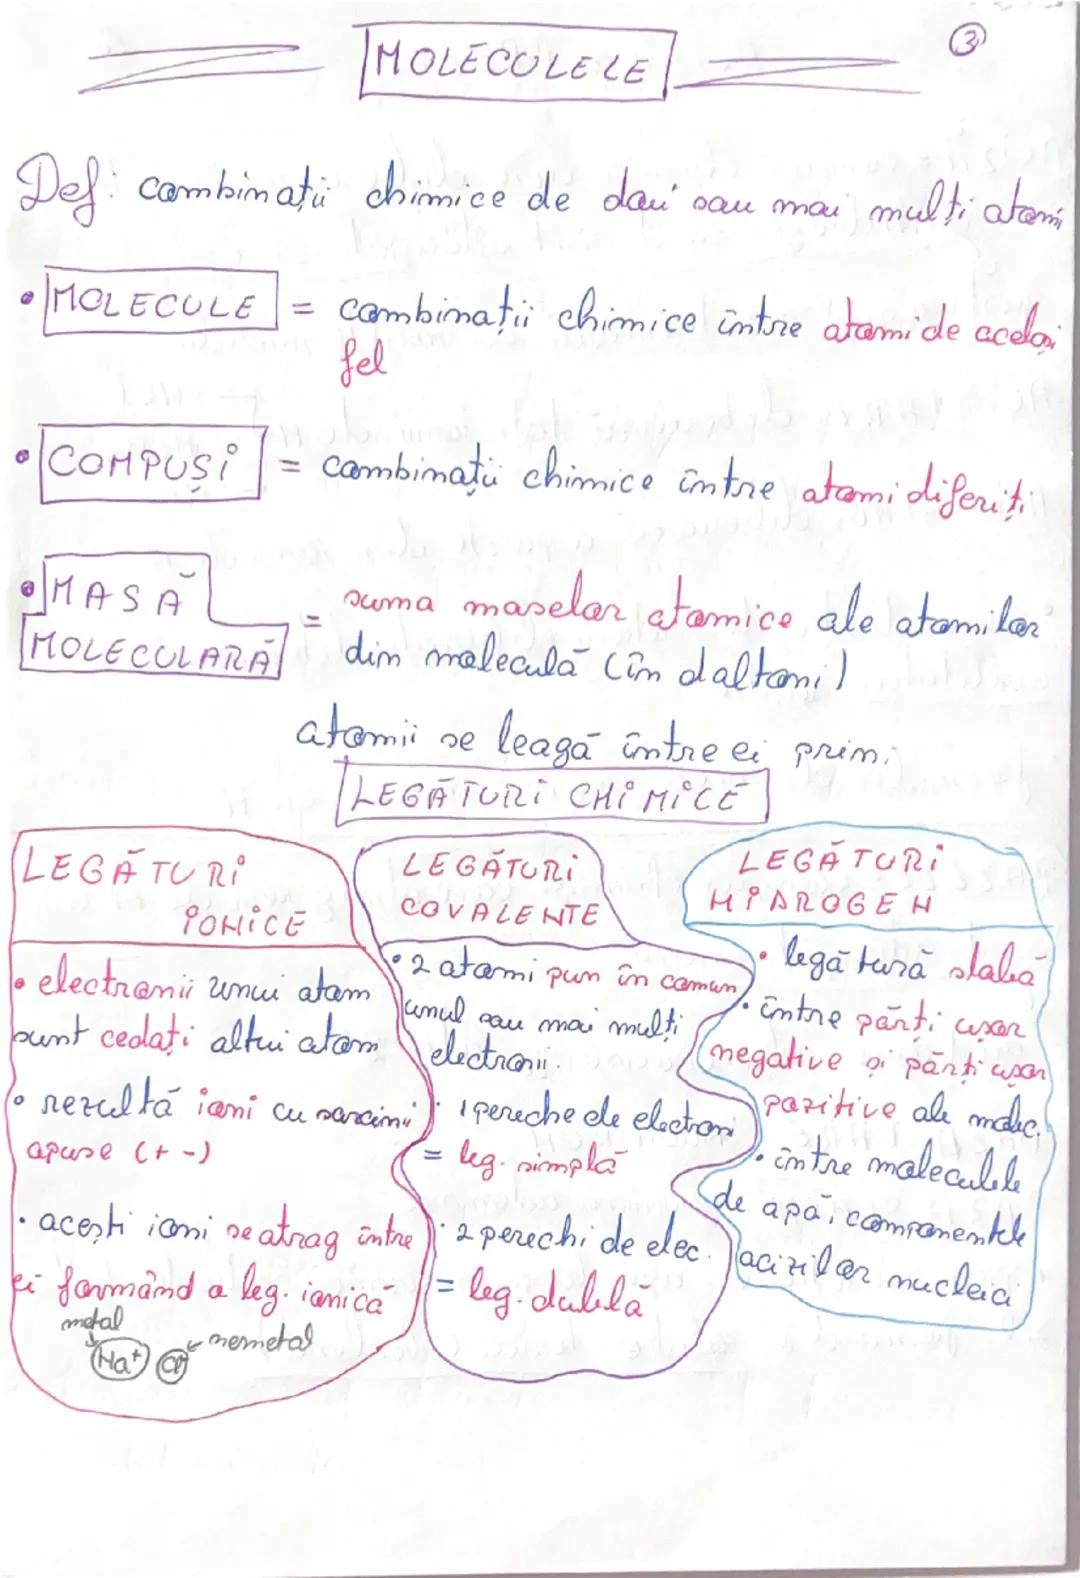 3
MOLECULELE
Def: combinații chimice de doi sau mai mulți atomi
• MOLECULE = combinații chimice între atomi de același
fel
• COMPUȘI = combinații chimice între atomi diferiți
• MASĂ
MOLECULARĂ
= suma maselor atomice ale atomilor
din moleculă (în daltoni)
atomii se leagă între ei prin:
LEGĂTURI CHIMICE
LEGĂTURI
IONICE
• electronii unui atom
sunt cedați altui atom
• rezultă ioni cu sarcini
opuse (+ -)
• acești ioni se atrag între
ei formând o leg. ionică
metal
Na+ Cl nemetal
LEGĂTURI
COVALENTE
• 2 atomi pun în comun
unul sau mai mulți
electroni.
• 1 pereche de electroni
= leg. simplă
• 2 perechi de elec.
= leg. dublă
LEGĂTURI
HIDROGEN
• legătură slabă
• între părți ușor
negative și părți ușor
pozitive ale molec.
• între moleculele
de apă, componentele
acizilor nucleici